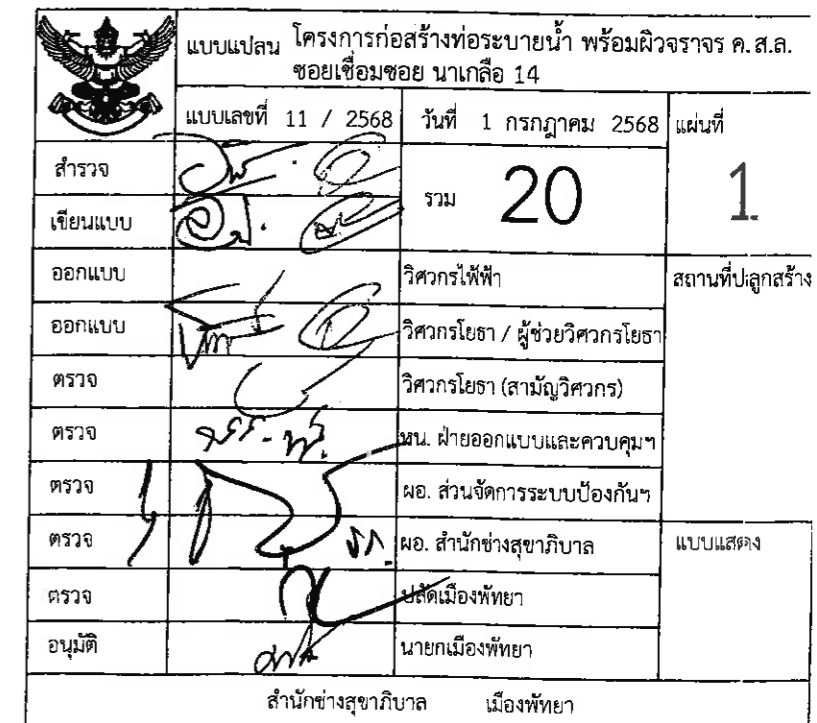 แบบแปลน โครงการก่อสร้างท่อระบายน้ำ พร้อมผิวจราจร ค.ส.ล.
ซอยเชื่อมซอย นาเกลือ 14
แบบเลขที่ 11 / 2568 วันที่ 1 กรกฎาคม 2568 แผ่นที่
สำรวจ
รวม 20 1
เขียนแบบ
ออกแบบ วิศวกรไฟ้ฟ้า สถานที่ปลูกสร้าง
ออกแบบ วิศวกรโยธา / ผู้ช่วยวิศวกรโยธา
ตรวจ วิศวกรโยธา (สามัญวิศวกร)
ตรวจ หน. ฝ่ายออกแบบและควบคุมฯ
ตรวจ ผอ. ส่วนจัดการระบบป้องกันฯ
ตรวจ ผอ. สำนักช่างสุขาภิบาล แบบแสดง
ตรวจ ปลัดเมืองพัทยา
อนุมัติ นายกเมืองพัทยา
สำนักช่างสุขาภิบาล เมืองพัทยา